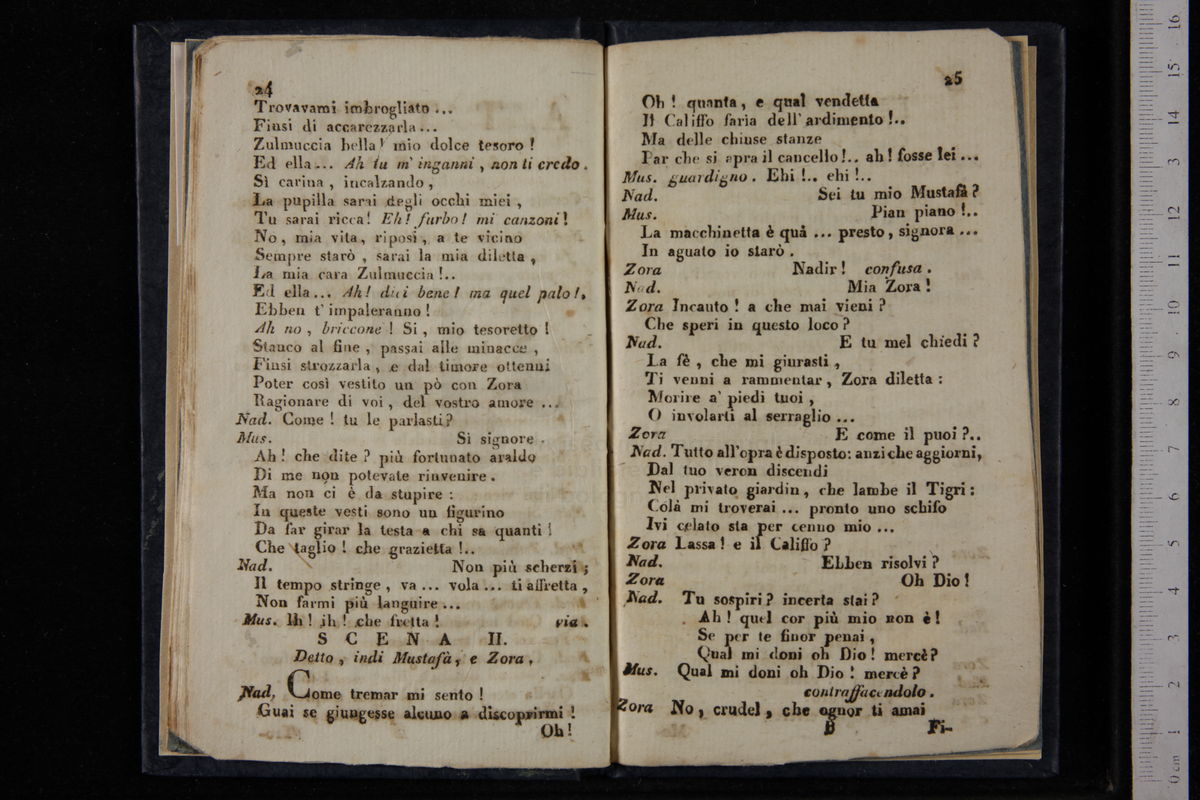 24
Trovavami imbrogliato ...
Finsi di accarezzarla ...
Zulmuccia bella! mio dolce tesoro!
Ed ella ... Ah tu m' inganni, non ti credo.
Sì carina, incalzando,
La pupilla sarai degli occhi miei,
Tu sarai ricca! Eh! furbo! mi canzoni!
No, mia vita, riposi, a te vicino
Sempre starò, sarai la mia diletta,
La mia cara Zulmuccia!..
Ed ella ... Ah! dici bene! ma quel palo!.
Ebben t' impaleranno!
Ah no, briccone! Si, mio tesoretto!
Stanco al fine, passai alle minacce,
Finsi strozzarla, e dal timore ottenni
Poter così vestito un pò con Zora
Ragionare di voi, del vostro amore ...
Nad. Come! tu le parlasti?
Mus. Si signore.
Ah! che dite? più fortunato araldo
Di me non potevate rinvenire.
Ma non ci è da stupire:
In queste vesti sono un figurino
Da far girar la testa a chi sa quanti!
Che taglio! che grazietta!..
Nad. Non più scherzi;
Il tempo stringe, va ... vola ... ti affretta,
Non farmi più languire ...
Mus. Ih! ih! che fretta! via.
SCENA II.
Detto, indi Mustafà, e Zora.
Nad. Come tremar mi sento!
Guai se giungesse alcuno a discoprirmi!
Oh!
25
Oh! quanta, e qual vendetta
Il Califfo faria dell' ardimento!..
Ma delle chiuse stanze
Par che si apra il cancello!.. ah! fosse lei ...
Mus. guardigno. Ehi!.. ehi!..
Nad. Sei tu mio Mustafà?
Mus. Pian piano!..
La macchinetta è quà ... presto, signora ...
In aguato io starò.
Zora Nadir! confusa.
Nad. Mia Zora!
Zora Incauto! a che mai vieni?
Che speri in questo loco?
Nad. E tu mel chiedi?
La fè, che mi giurasti,
Ti venni a rammentar, Zora diletta:
Morire a' piedi tuoi,
O involarti al serraglio ...
Zora E come il puoi?..
Nad. Tutto all'opra è disposto: anzi che aggiorni,
Dal tuo veron discendi
Nel privato giardin, che lambe il Tigri:
Colà mi troverai ... pronto uno schifo
Ivi celato sta per cenno mio ...
Zora Lassa! e il Califfo?
Nad. Ebben risolvi?
Zora Oh Dio!
Nad. Tu sospiri? incerta stai?
Ah! quel cor più mio non è!
Se per te finor penai,
Qual mi doni oh Dio! mercè?
Mus. Qual mi doni oh Dio! mercè?
contraffacendolo.
Zora No, crudel, che ognor ti amai
B Fi-
0 cm 1 2 3 4 5 6 7 8 9 10 11 12 13 14 15 16